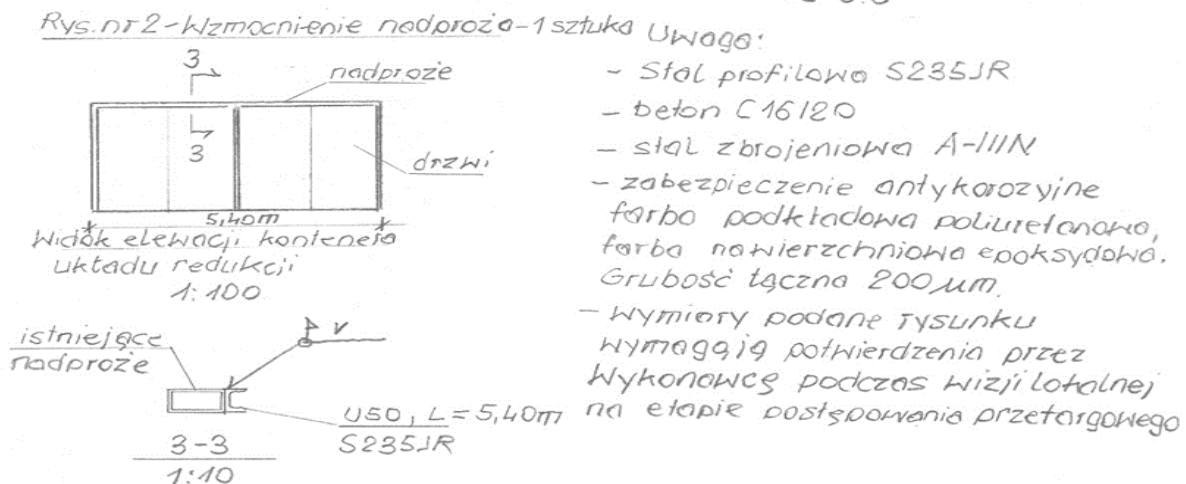 Rys. nr 2 - Wzmocnienie nadproża - 1 sztuka
3
nadproże
3
drzwi
5,40m
Widok elewacji kontenera
układu redukcji
1:100
istniejące
nadproże
V
U50, L=5,40m
S235JR
3-3
1:10
Uwaga:
- Stal profilowa S235JR
- beton C16/20
- stal zbrojeniowa A-IIIN
- zabezpieczenie antykorozyjne
farba podkładowa poliuretanowa,
farba nawierzchniowa epoksydowa.
Grubość łączna 200 µm.
- Wymiary podane rysunku
wymagają potwierdzenia przez
Wykonawcę podczas wizji lokalnej
na etapie postępowania przetargowego